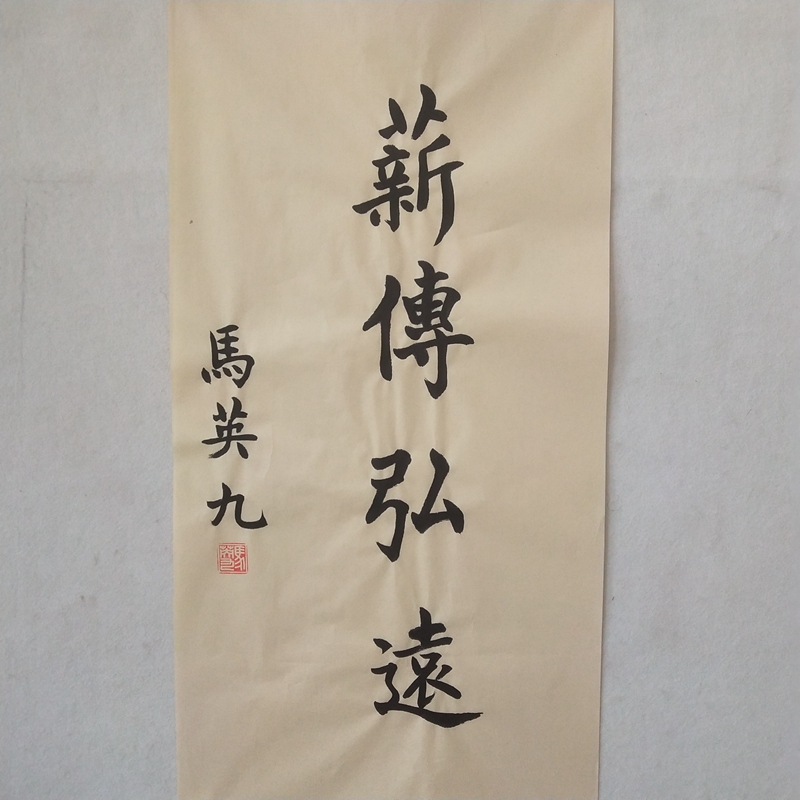 薪傳弘遠
馬英九